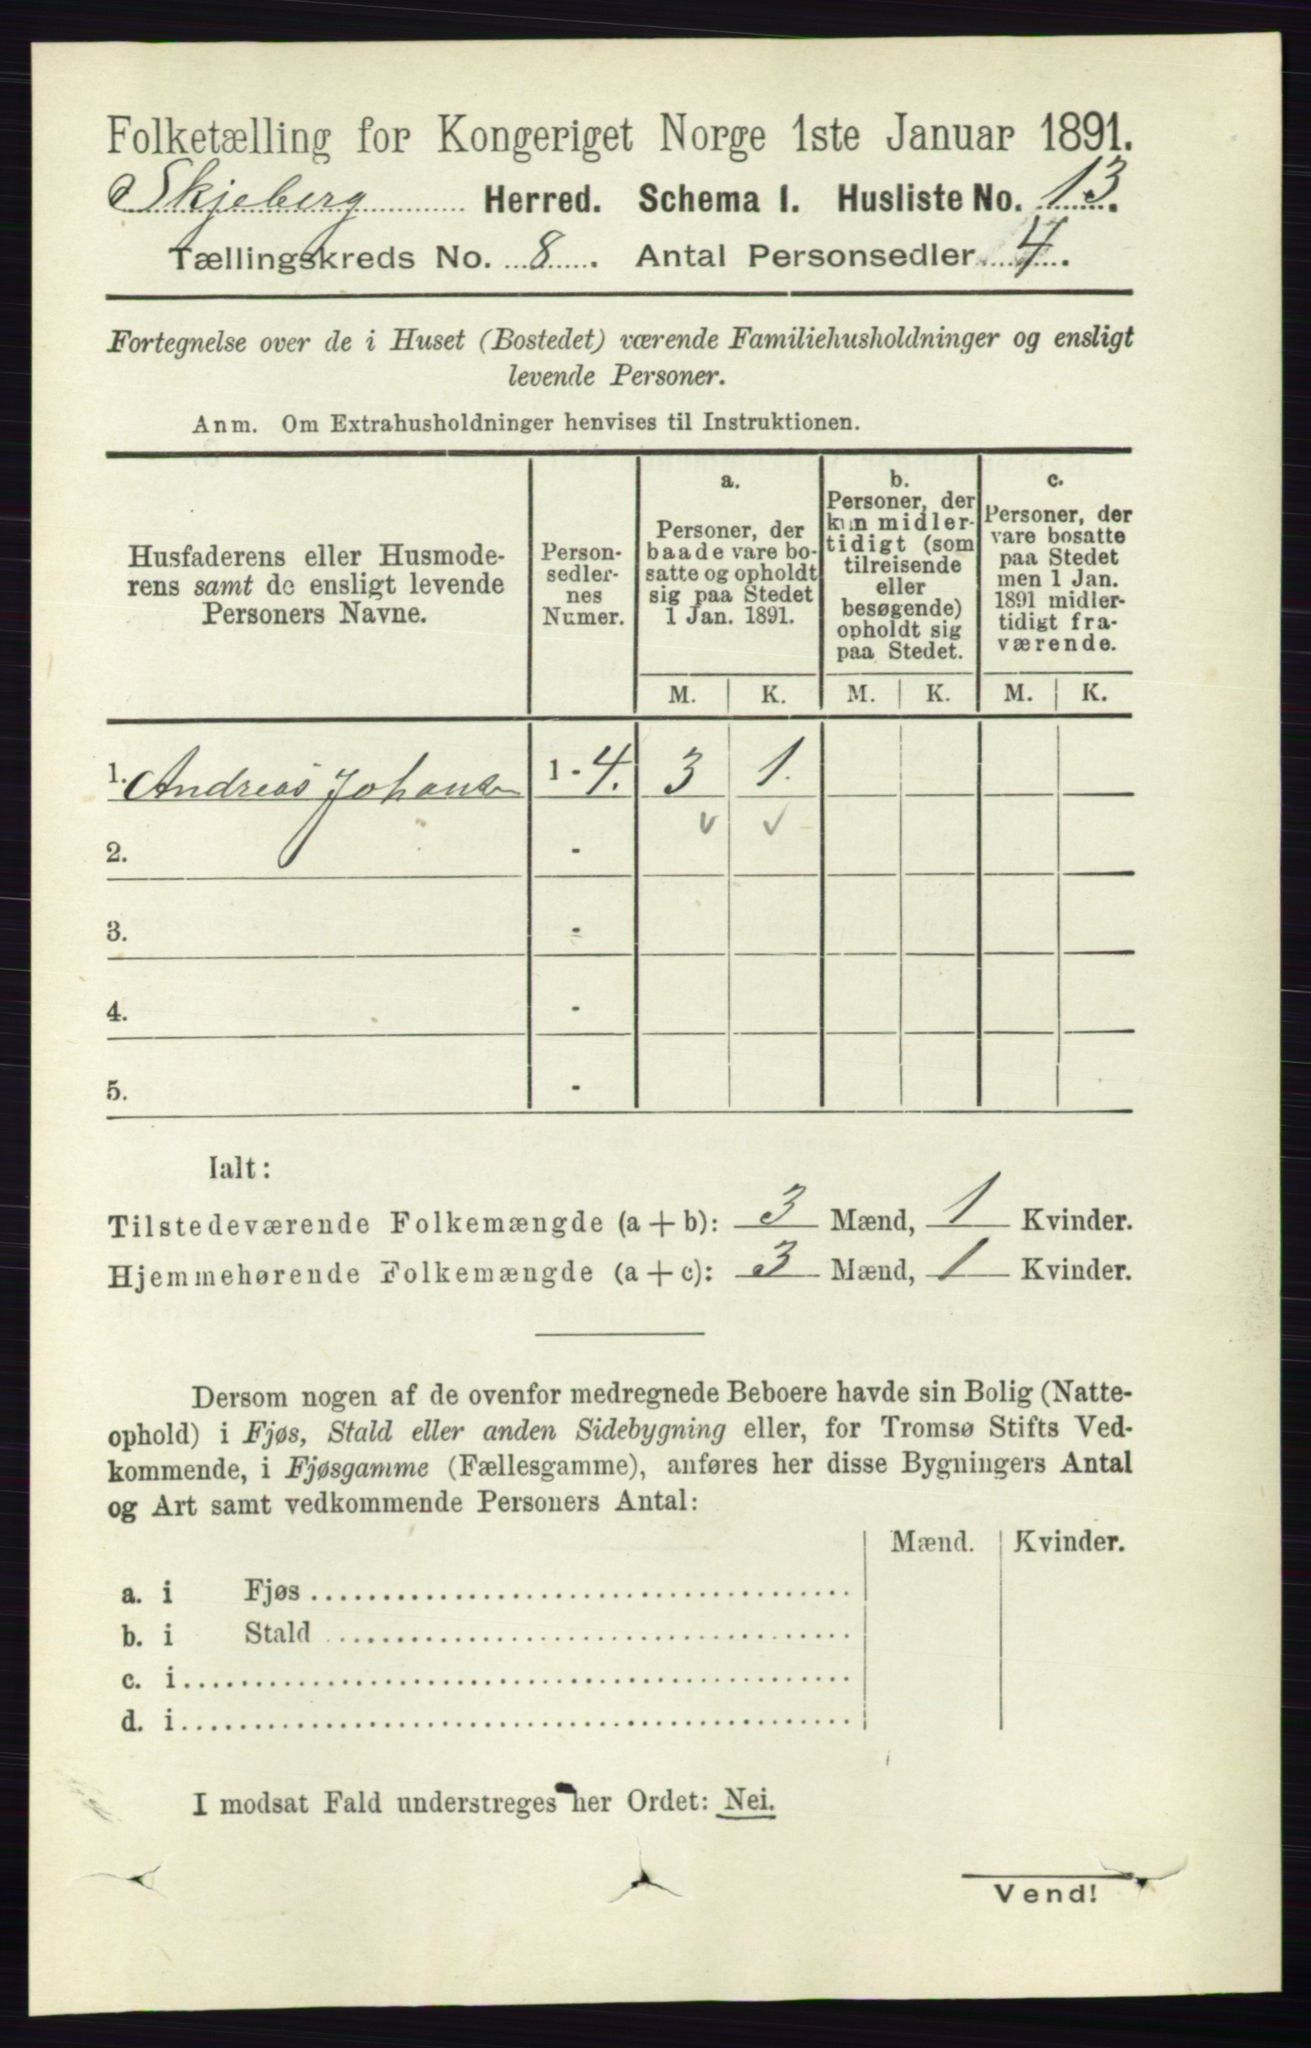 Folketælling for Kongeriget Norge 1ste Januar 1891.
Skjeberg Herred. Schema I. Husliste No. 13.
Tællingskreds No. 8. Antal Personsedler 4.
Fortegnelse over de i Huset (Bostedet) værende Familiehusholdninger og ensligt
levende Personer.
Anm. Om Extrahusholdninger henvises til Instruktionen.
Husfaderens eller Husmode-
rens samt de ensligt levende
Personers Navne.
Person-
sedler-
nes
Numer.
a.
Personer, der
baade vare bo-
satte og opholdt
sig paa Stedet
1 Jan. 1891.
b.
Personer, der
kun midler-
tidigt (som
tilreisende
eller
besøgende)
opholdt sig
paa Stedet.
c.
Personer, der
vare bosatte
paa Stedet
men 1 Jan.
1891 midler-
tidigt fra-
værende.
M. K. M. K. M. K.
1. Andreas Johansen 1 - 4. 3 1.
2. -
3. -
4. -
5. -
Ialt:
Tilstedeværende Folkemængde (a + b): 3 Mænd, 1 Kvinder.
Hjemmehørende Folkemængde (a + c): 3 Mænd, 1 Kvinder.
Dersom nogen af de ovenfor medregnede Beboere havde sin Bolig (Natte-
ophold) i Fjøs, Stald eller anden Sidebygning eller, for Tromsø Stifts Ved-
kommende, i Fjøsgamme (Fællesgamme), anføres her disse Bygningers Antal
og Art samt vedkommende Personers Antal:
Mænd. Kvinder.
a. i Fjøs
b. i Stald
c. i
d. i
I modsat Fald understreges her Ordet: Nei.
Vend!